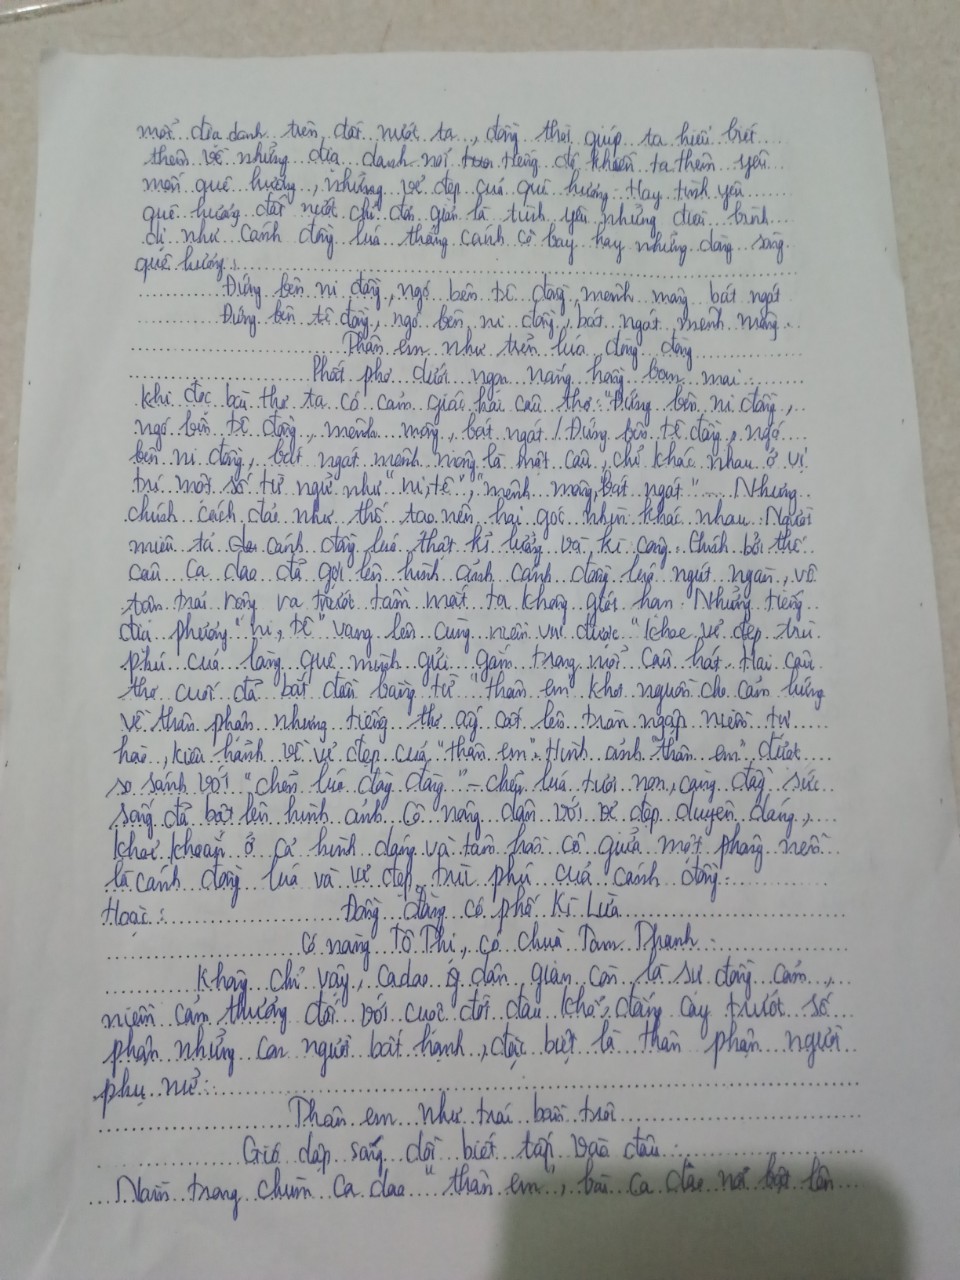 một địa danh trên đất nước ta, đồng thời giúp ta hiểu biết
thêm về những địa danh nổi tiếng để khiến ta thêm yêu
mến quê hương, những vẻ đẹp của quê hương. Hay tình yêu
quê hương đất nước chỉ đơn giản là tình yêu những điều bình
dị như cánh đồng lúa thẳng cánh cò bay hay những dòng sông
quê hương:
Đứng bên ni đồng, ngó bên tê đồng, mênh mông bát ngát
Đứng bên tê đồng, ngó bên ni đồng, bát ngát mênh mông.
Thân em như trẽn lúa đòng đòng
Phất phơ dưới ngọn nắng hồng ban mai.
Khi đọc bài thơ ta có cảm giác hai câu thơ: "Đứng bên ni đồng,
ngó bên tê đồng, mênh mông, bát ngát / Đứng bên tê đồng, ngó
bên ni đồng, bát ngát mênh mông là một câu, chỉ khác nhau ở vị
trí một số từ ngữ như "ni, tê", "mênh mông, bát ngát"... Nhưng
chính cách đảo như thế tạo nên hai góc nhìn khác nhau. Người
miêu tả cánh đồng lúa thật kĩ lưỡng và kì công. Chính bởi thế
câu ca dao đã gợi lên hình ảnh cánh đồng lúa ngút ngàn, vô
tận trải rộng ra trước tầm mắt ta không giới hạn. Những tiếng
địa phương "ni, tê" vang lên cùng niềm vui được "khoe vẻ đẹp trù
phú của làng quê mình gửi gắm trong mỗi câu hát. Hai câu
thơ cuối đã bắt đầu bằng từ "thân em" khơi nguồn cho cảm hứng
về thân phận nhưng tiếng thơ ấy cất lên tràn ngập niềm tự
hào, kiêu hãnh về vẻ đẹp của "thân em". Hình ảnh "thân em" được
so sánh với "chẽn lúa đòng đòng" – chẽn lúa tươi non, căng đầy sức
sống đã bật lên hình ảnh cô nông dân với vẻ đẹp duyên dáng,
khỏe khoắn ở cả hình dáng và tâm hồn cô giữa một phông nền
là cánh đồng lúa và vẻ đẹp trù phú của cánh đồng.
Hoặc: Đồng đăng có phố Kì Lừa
Có nàng Tô Thị, có chùa Tam Thanh.
Không chỉ vậy, ca dao dân gian còn là sự đồng cảm,
niềm cảm thương đối với cuộc đời đau khổ, đắng cay trước số
phận những con người bất hạnh, đặc biệt là thân phận người
phụ nữ:
Thân em như trái bần trôi
Gió dập sóng dồi biết tấp vào đâu.
Nằm trong chùm ca dao "thân em", bài ca dao nổi bật lên